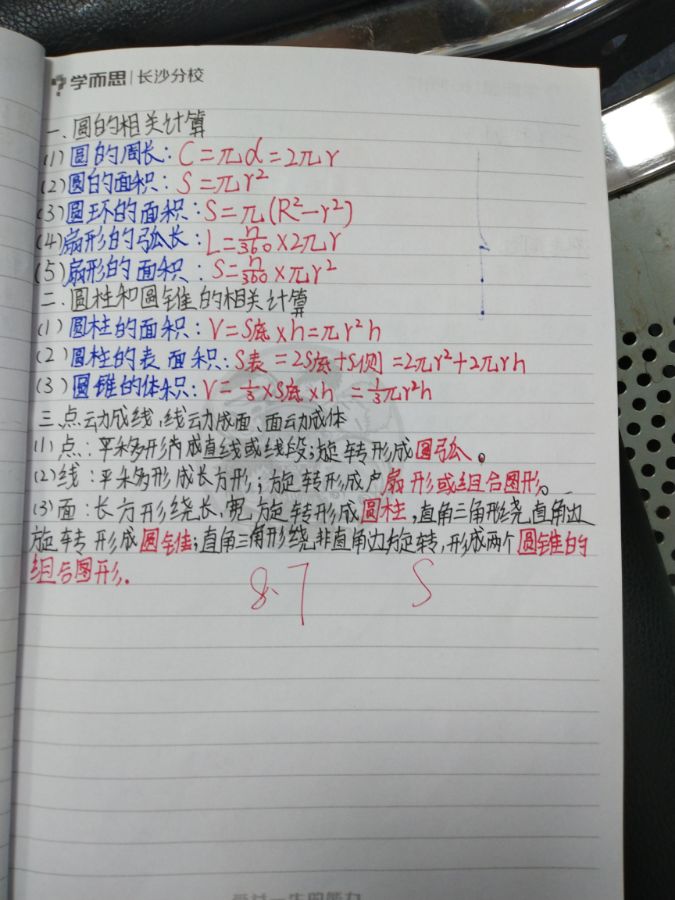 学而思 | 长沙分校
一、圆的相关计算
(1)圆的周长:C=πd=2πr
(2)圆的面积:S=πr²
(3)圆环的面积:S=π(R²-r²)
(4)扇形的弧长:L=n/360×2πr
(5)扇形的面积:S=n/360×πr²
二、圆柱和圆锥的相关计算
(1)圆柱的面积:V=S底×h=πr²h
(2)圆柱的表面积:S表=2S底+S侧=2πr²+2πrh
(3)圆锥的体积:V=1/3×S底×h=1/3πr²h
三、点动成线,线动成面、面动成体
(1)点:平移形成直线或线段;旋转形成圆弧。
(2)线:平移形成长方形;旋转形成户扇形或组合图形。
(3)面:长方形绕长、宽旋转形成圆柱,直角三角形绕直角边
旋转形成圆锥;直角三角形绕非直角边旋转,形成两个圆锥的
组合图形.
8.7 S